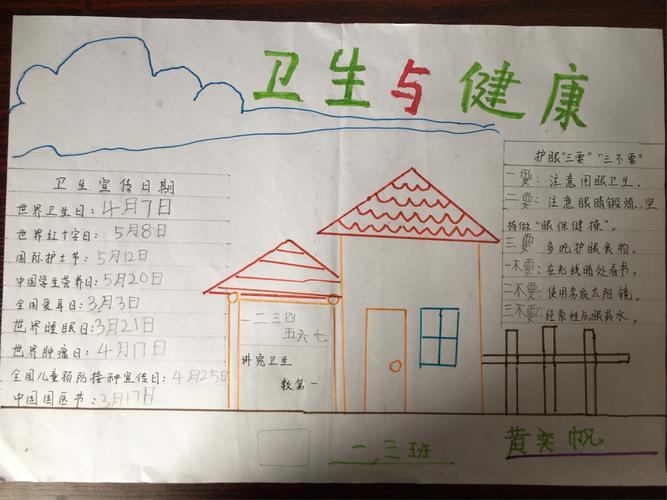 卫生与健康
卫生宣传日期
世界卫生日：4月7日
世界红十字日：5月8日
国际护士节：5月12日
中国学生营养日：5月20日
全国爱耳日：3月3日
世界睡眠日：3月21日
世界肿瘤日：4月17日
全国儿童预防接种宣传日：4月25日
中国国医节：3月17日
一二三四
五六七
讲究卫生
数第一
护眼“三要”“三不要”
一要：注意用眼卫生。
二要：注意眼睛锻炼、坚
持做“眼保健操”。
三要：多吃护眼食物。
一不要：在光线暗处看书。
二不要：使用名版太阳镜。
三不要：经常性点眼药水。
一、三班
黄奕帆